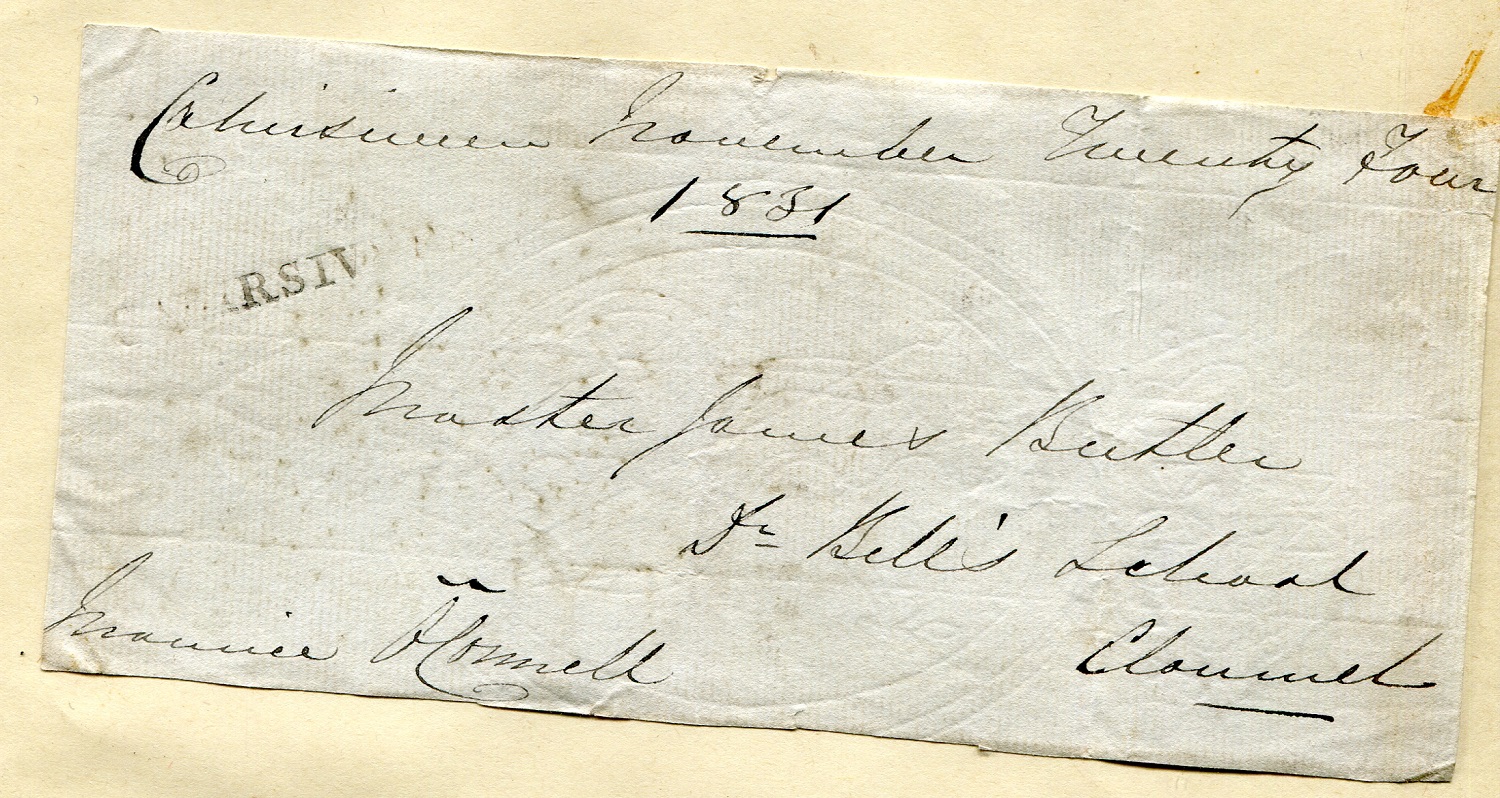 Cahirsiveen November Twenty Four
1831
RSIV
Master James Butler
Dr Bell's School
Maurice O'Connell
Clonmel